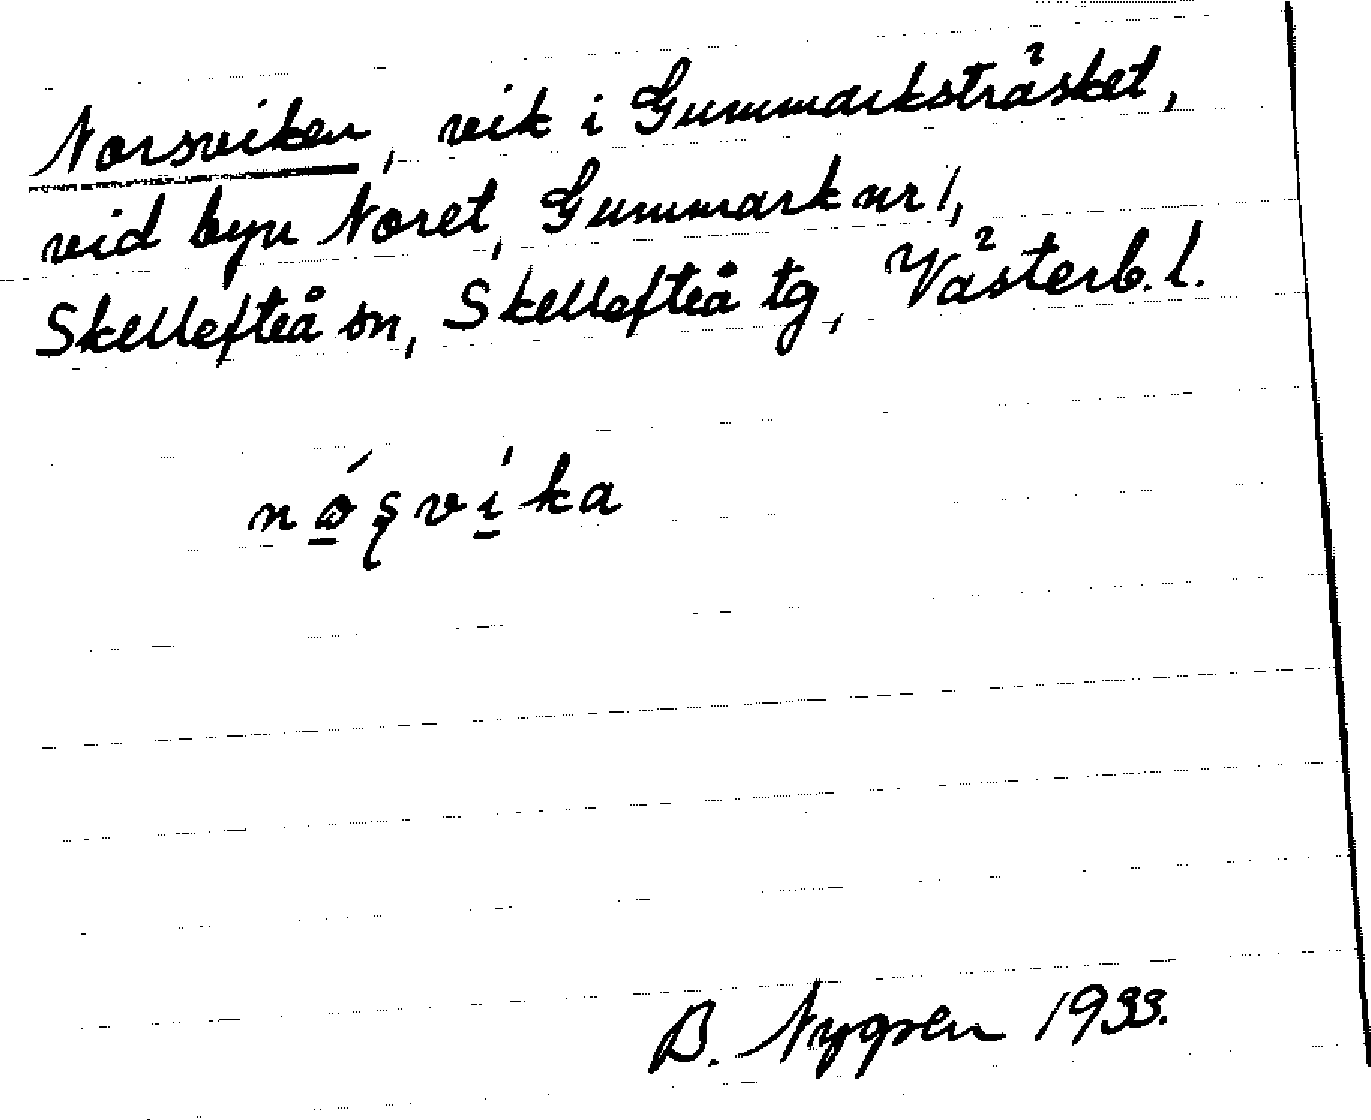 Norsviken, vik i Gummarksträsket,
vid byn Noret, Gummark nr 1,
Skellefteå sn, Skellefteå tg, Västerb. l.
nǿ̱ʂví̱ka
B. Nygren 1933.